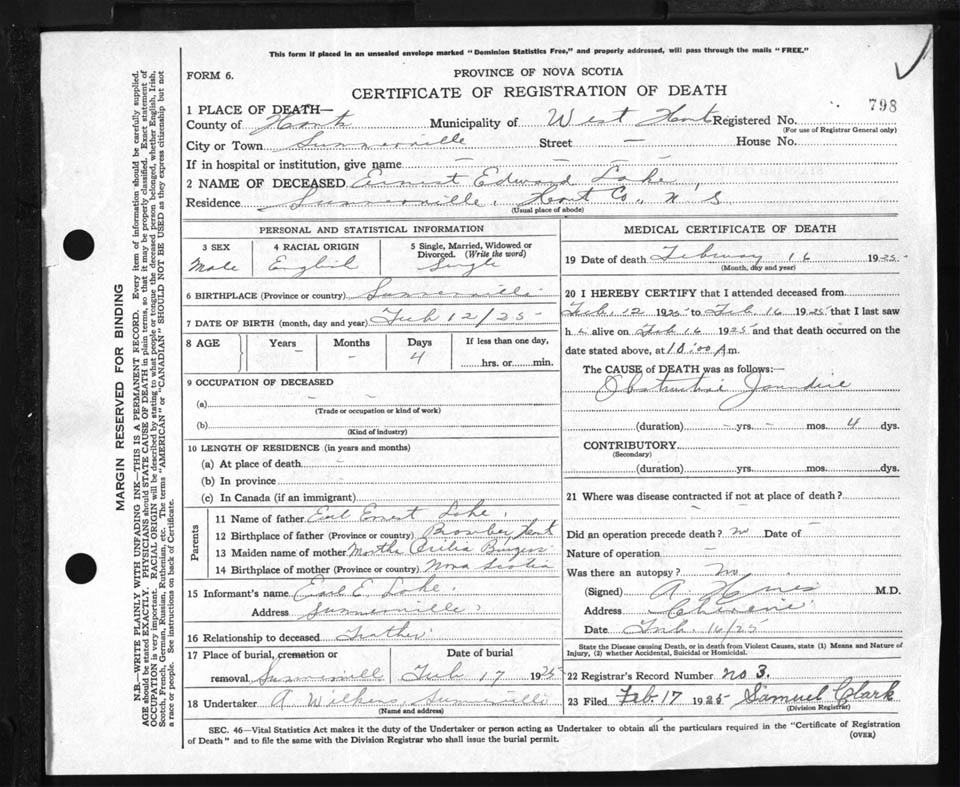 This form if placed in an unsealed envelope marked "Dominion Statistics Free," and properly addressed, will pass through the mails "FREE."
FORM 6.
PROVINCE OF NOVA SCOTIA
CERTIFICATE OF REGISTRATION OF DEATH
798
1 PLACE OF DEATH—
County of Hants Municipality of West Hants Registered No.
(For use of Registrar General only)
City or Town Summerville Street — House No.
If in hospital or institution, give name — — —
2 NAME OF DECEASED Ernest Edward Lake
Residence Summerville, Hants Co., N S
(Usual place of abode)
PERSONAL AND STATISTICAL INFORMATION
3 SEX 4 RACIAL ORIGIN 5 Single, Married, Widowed or Divorced. (Write the word)
Male English Single
6 BIRTHPLACE (Province or country) Summerville
7 DATE OF BIRTH (month, day and year) Feb 12/25
8 AGE Years Months Days If less than one day,
— — 4 hrs. or min.
9 OCCUPATION OF DECEASED
(a) — —
(Trade or occupation or kind of work)
(b)
(Kind of industry)
10 LENGTH OF RESIDENCE (in years and months)
(a) At place of death —
(b) In province —
(c) In Canada (if an immigrant)
Parents
11 Name of father Earl Ernest Lake
12 Birthplace of father (Province or country) Hant
13 Maiden name of mother Martha Burgess
14 Birthplace of mother (Province or country) Nova Scotia
15 Informant's name Earl E. Lake
Address Summerville
16 Relationship to deceased Father
17 Place of burial, cremation or Date of burial
removal Summerville Feb 17 1925
18 Undertaker A Wilkins Summerville
(Name and address)
MEDICAL CERTIFICATE OF DEATH
19 Date of death February 16 1925
(Month, day and year)
20 I HEREBY CERTIFY that I attended deceased from
Feb. 12 1925 to Feb. 16 1925 that I last saw
h alive on Feb 16 1925 and that death occurred on
date stated above, at 10:00 A m.
The CAUSE of DEATH was as follows:—
Obstructive Jaundice
(duration) — yrs. — mos. 4 dys.
CONTRIBUTORY
(Secondary)
(duration) yrs. mos. dys.
21 Where was disease contracted if not at place of death?
—
Did an operation precede death? no Date of —
Nature of operation —
Was there an autopsy? no
(Signed) A. M.D.
Address
Date Feb. 16/25
State the Disease causing Death, or in death from Violent Causes, state (1) Means and Nature of Injury, (2) whether Accidental, Suicidal or Homicidal.
22 Registrar's Record Number no 3.
23 Filed Feb. 17 1925 Samuel Clark
(Division Registrar)
SEC. 46—Vital Statistics Act makes it the duty of the Undertaker or person acting as Undertaker to obtain all the particulars required in the "Certificate of Registration
of Death" and to file the same with the Division Registrar who shall issue the burial permit.
(OVER)
MARGIN RESERVED FOR BINDING
N.B.—WRITE PLAINLY WITH UNFADING INK—THIS IS A PERMANENT RECORD. Every item of information should be carefully supplied.
AGE should be stated EXACTLY. PHYSICIANS should STATE CAUSE OF DEATH in plain terms, so that it may be properly classified. Exact statement of
OCCUPATION is very important. RACIAL ORIGIN will be described by stating to what people or tongue the deceased person belonged, whether English, Irish,
Scotch, French, German, Russian, Ruthenian, etc. The terms "AMERICAN" or "CANADIAN" SHOULD NOT BE USED as they express citizenship but not
a race or people. See instructions on back of Certificate.